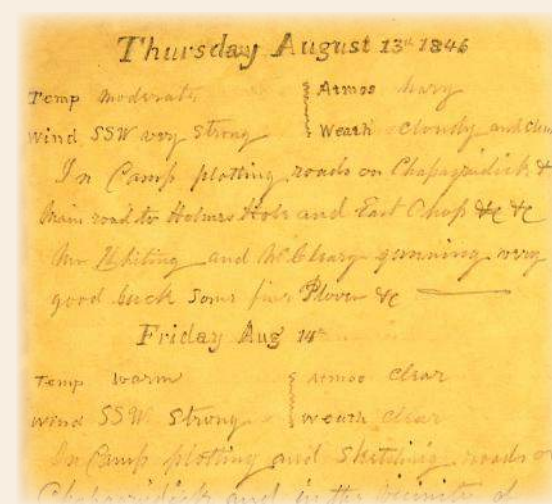 Thursday August 13th 1846
Temp Moderate Atmos hazy
Wind SSW very Strong Weath cloudy and
In Camp plotting roads on Chapaquidick &
Main road to Holmes Hole and East Chop &c &c
Mr Whiting and McCleary gunning very
good luck Some fine Plover &c
Friday Aug 14th
Temp warm Atmos Clear
Wind SSW Strong Weath Clear
In Camp plotting and Sketching roads on
Chapaquidick and in the vicinity of